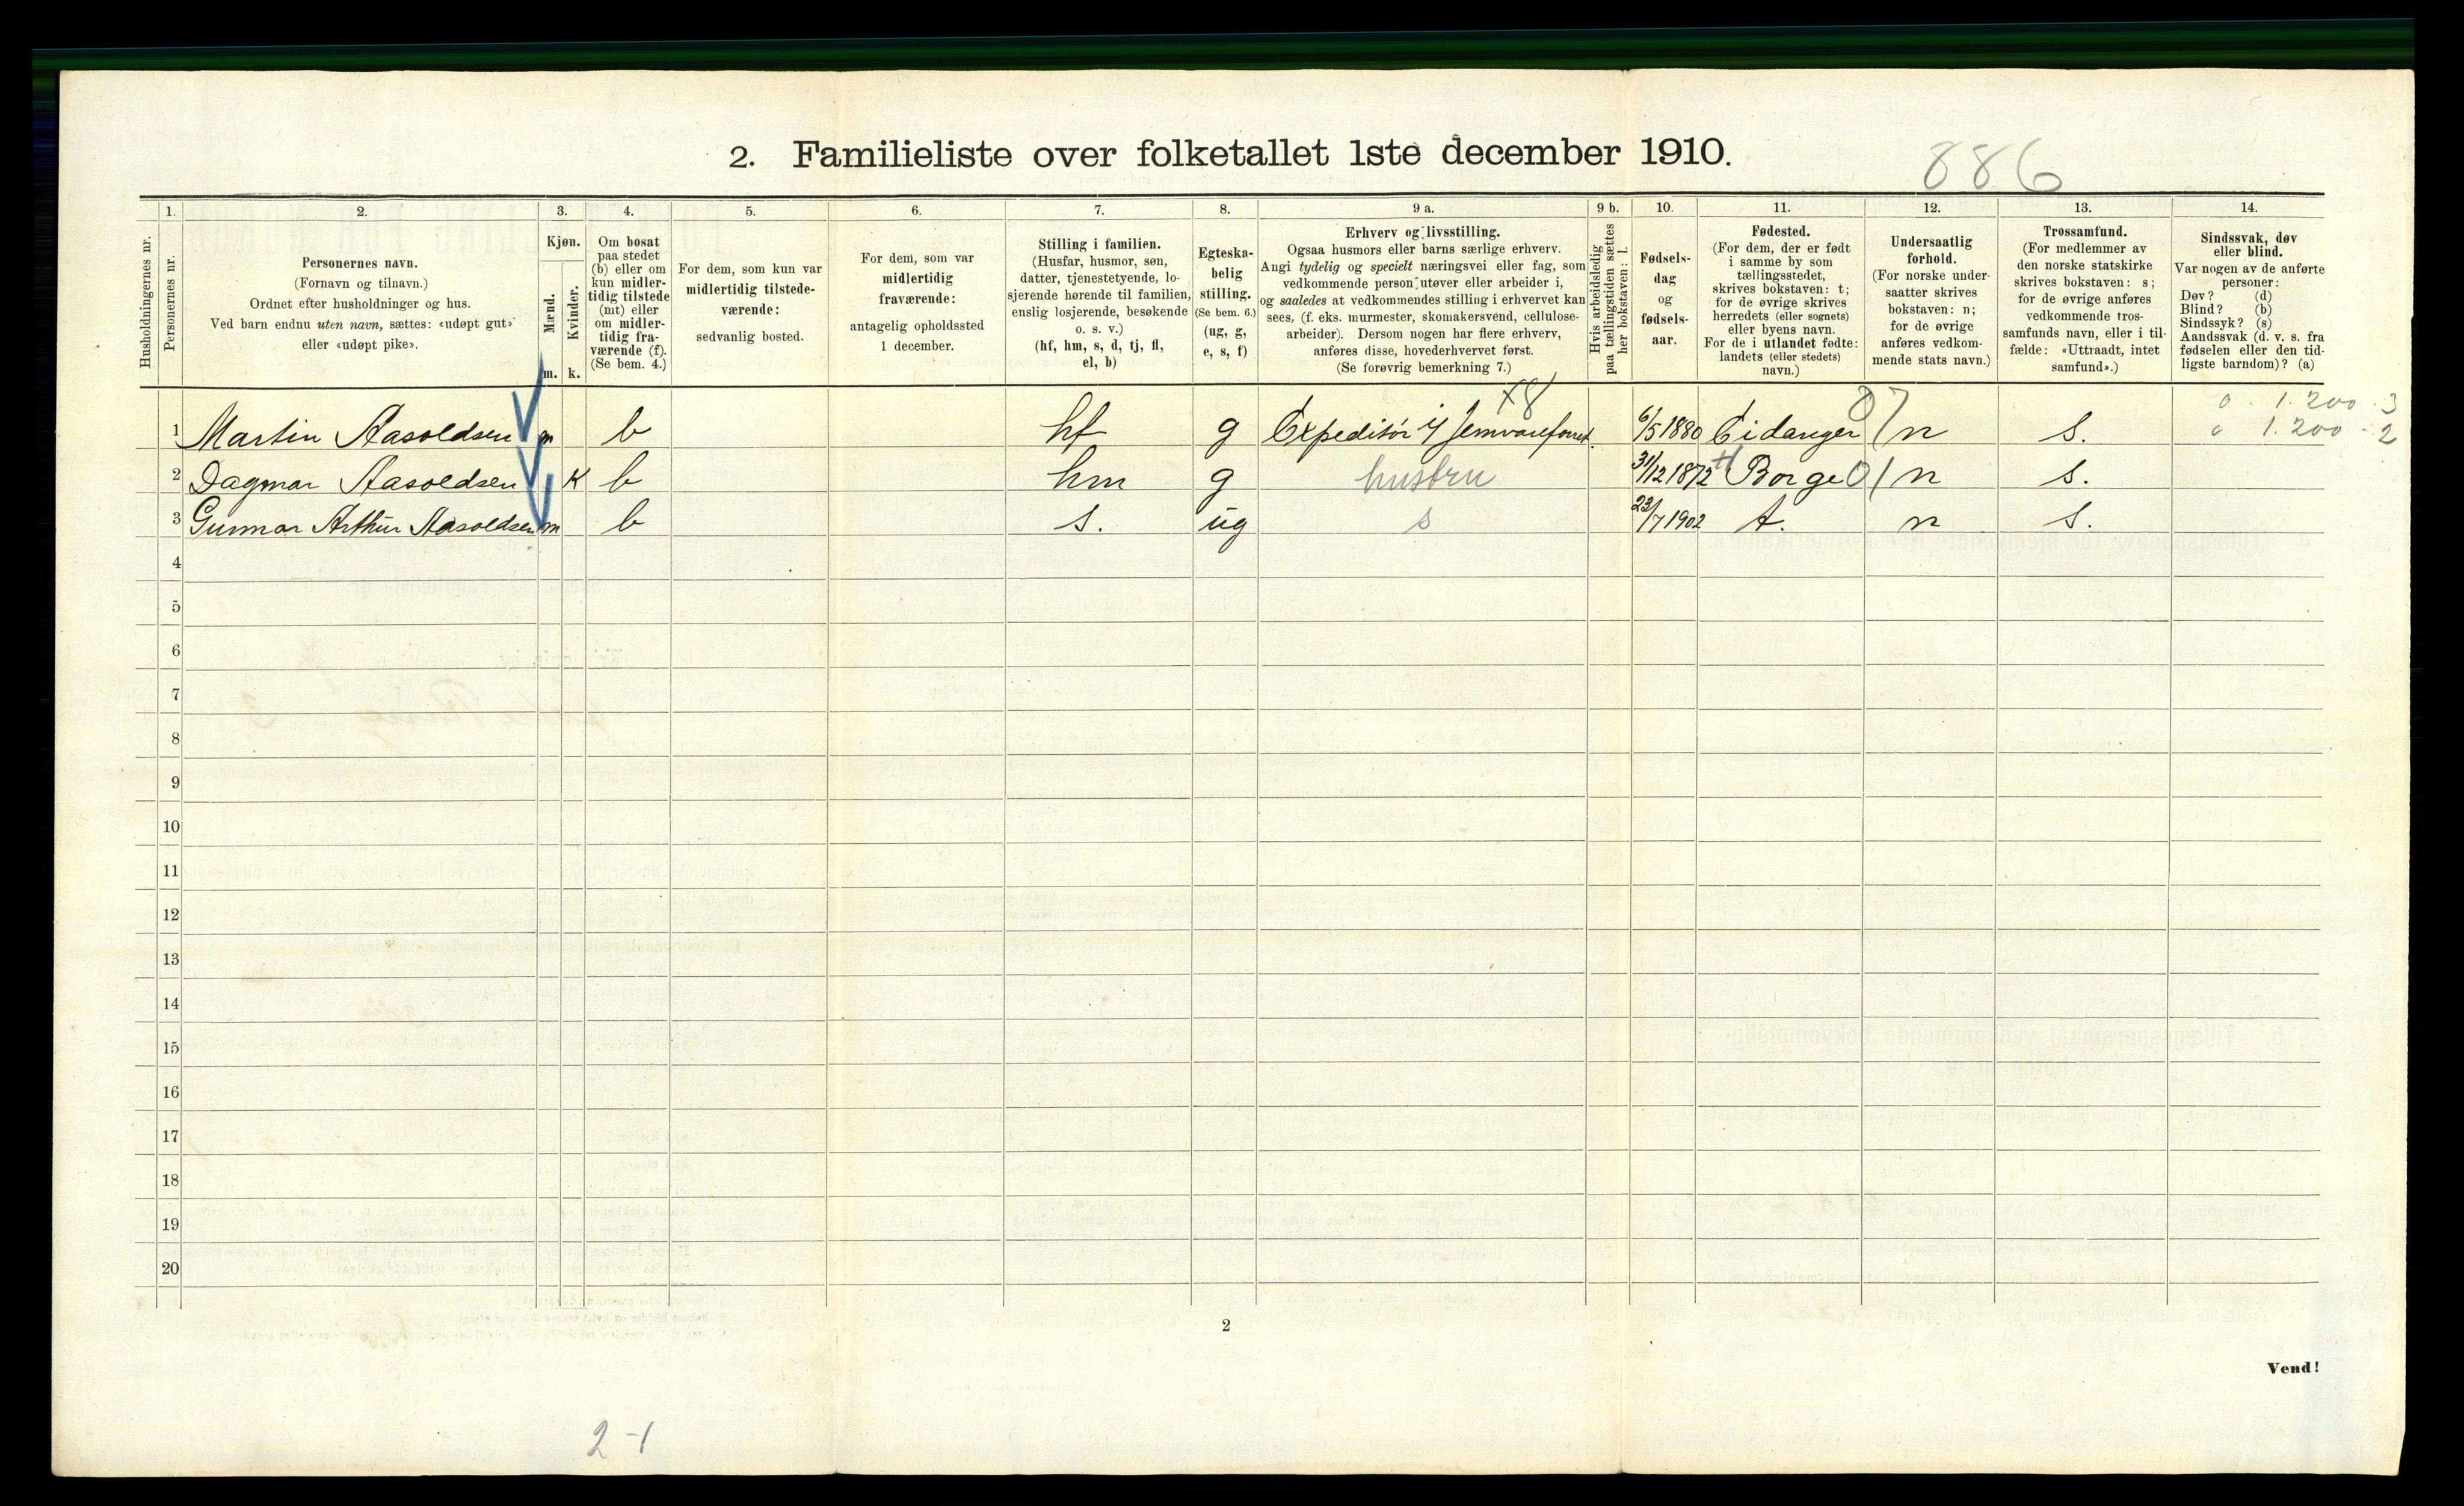 2. Familieliste over folketallet 1ste december 1910.
886
Husholdningernes nr.
1.
Personernes nr.
2.
Personernes navn.
(Fornavn og tilnavn.)
Ordnet efter husholdninger og hus.
Ved barn endnu uten navn, sættes: «udøpt gut»
eller «udøpt pike».
3.
Kjøn.
Mænd.
Kvinder.
m. k.
4.
Om bosat
paa stedet
(b) eller om
kun midler-
tidig tilstede
(mt) eller
om midler-
tidig fra-
værende (f).
(Se bem. 4.)
5.
For dem, som kun var
midlertidig tilstede-
værende:
sedvanlig bosted.
6.
For dem, som var
midlertidig
fraværende:
antagelig opholdssted
1 december.
7.
Stilling i familien.
(Husfar, husmor, søn,
datter, tjenestetyende, lo-
sjerende hørende til familien,
enslig losjerende, besøkende
o. s. v.)
(hf, hm, s, d, tj, fl,
el, b)
8.
Egteska-
belig
stilling.
(Se bem. 6.)
(ug, g,
e, s, f)
9 a.
Erhverv og livsstilling.
Ogsaa husmors eller barns særlige erhverv.
Angi tydelig og specielt næringsvei eller fag, som
vedkommende person utøver eller arbeider i,
og saaledes at vedkommendes stilling i erhvervet kan
sees, (f. eks. murmester, skomakersvend, cellulose-
arbeider). Dersom nogen har flere erhverv,
anføres disse, hovederhvervet først.
(Se forøvrig bemerkning 7.)
9 b.
Hvis arbeidsledig
paa tællingstiden sættes
her bokstaven: l.
10.
Fødsels-
dag
og
fødsels-
aar.
11.
Fødested.
(For dem, der er født
i samme by som
tællingsstedet,
skrives bokstaven: t;
for de øvrige skrives
herredets (eller sognets)
eller byens navn.
For de i utlandet fødte:
landets (eller stedets)
navn.)
12.
Undersaatlig
forhold.
(For norske under-
saatter skrives
bokstaven: n;
for de øvrige
anføres vedkom-
mende stats navn.)
13.
Trossamfund.
(For medlemmer av
den norske statskirke
skrives bokstaven: s;
for de øvrige anføres
vedkommende tros-
samfunds navn, eller i til-
fælde: «Uttraadt, intet
samfund».)
14.
Sindssvak, døv
eller blind.
Var nogen av de anførte
personer:
Døv? (d)
Blind? (b)
Sindssyk? (s)
Aandssvak (d. v. s. fra
fødselen eller den tid-
ligste barndom)? (a)
x8 87 0 . 1.200 . 3
1 Martin Aasoldsen m b hf g Expeditør i Jernvareforret. 6/5 1880 Eidanger n s. 0 1.200 - 2
2 Dagmar Aasoldsen K b hm g hustru 31/12 1872 Borge 01 n s.
3 Gunnar Arthur Aasoldsen m b s. ug s 23/7 1902 t. n s.
4
5
6
7
8
9
10
11
12
13
14
15
16
17
18
19
20
2
Vend!
2-1